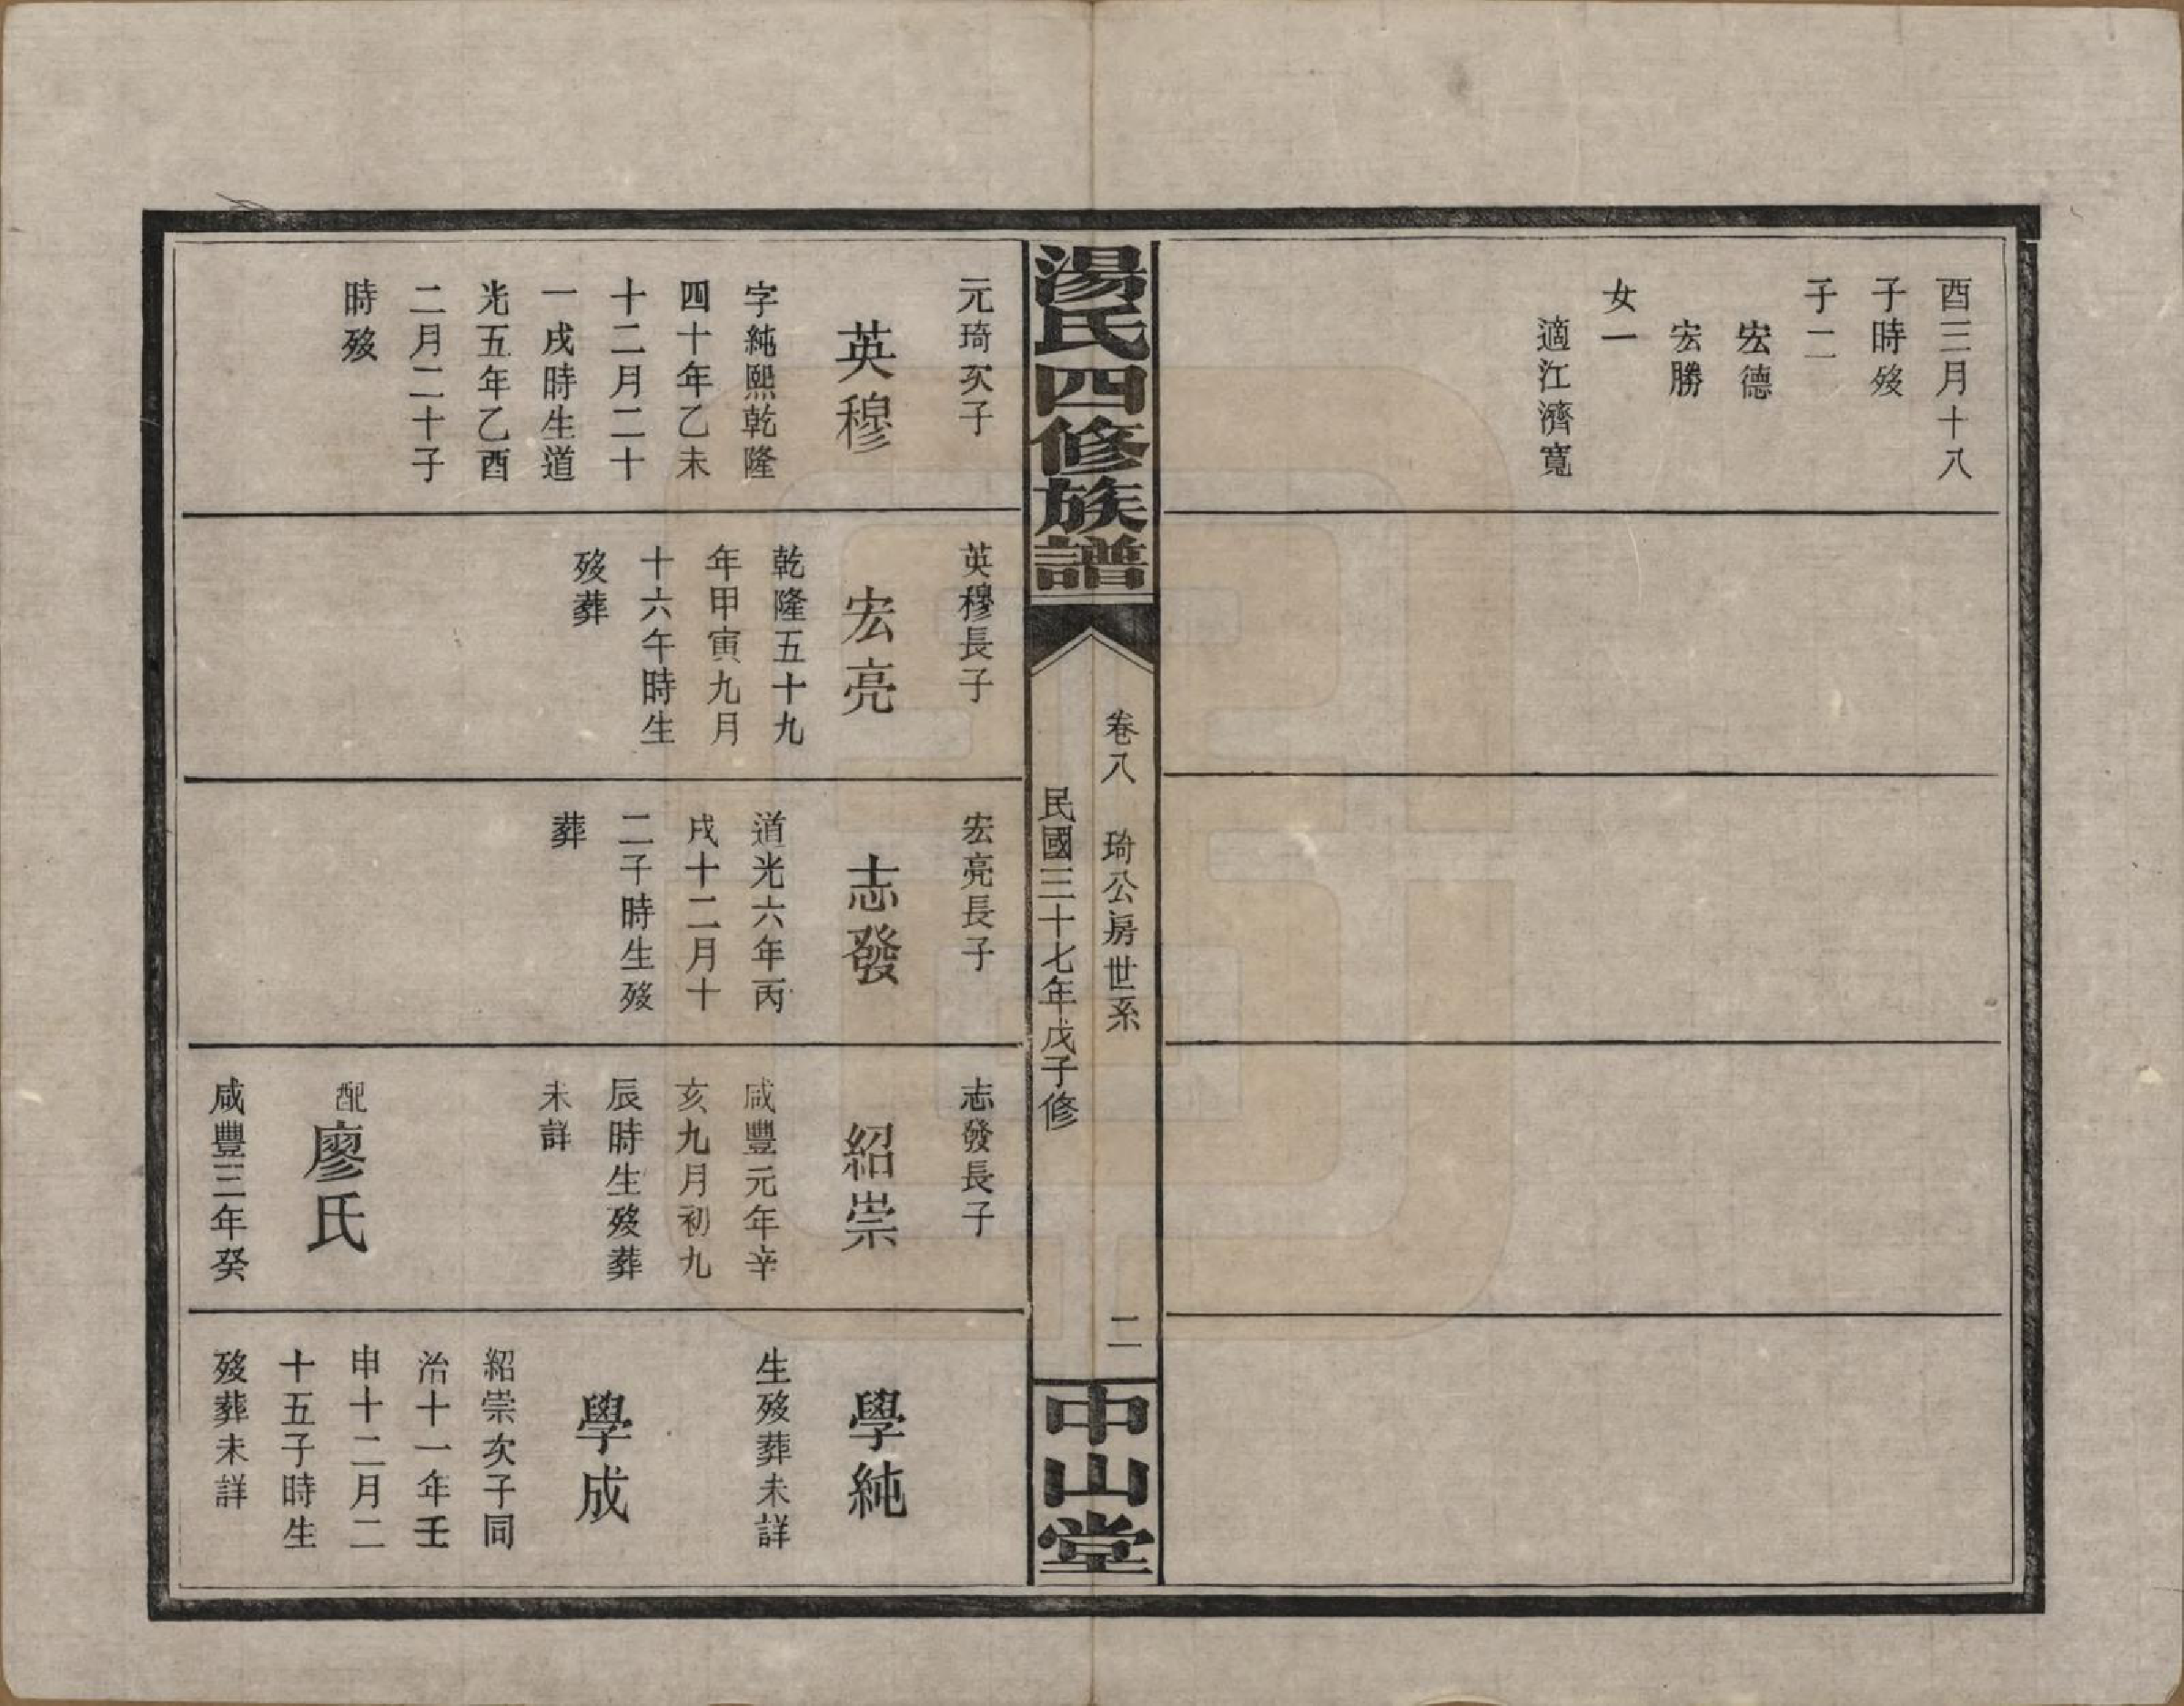 酉三月十八
子時歿
子二
宏德
宏勝
女一
適江濟寬
湯氏四修族譜
卷八 琦公房世系 二
民國三十七年戊子修
中山堂
元琦次子
英穆
字純熙乾隆
四十年乙未
十二月二十
一戌時生道
光五年乙酉
二月二十子
時歿
英穆長子
宏亮
乾隆五十九
年甲寅九月
十六午時生
歿葬
宏亮長子
志發
道光六年丙
戌十二月十
二子時生歿
葬
志發長子
紹崇
咸豐元年辛
亥九月初九
辰時生歿葬
未詳
配廖氏
咸豐三年癸
學純
生歿葬未詳
學成
紹崇次子同
治十一年壬
申十二月二
十五子時生
歿葬未詳